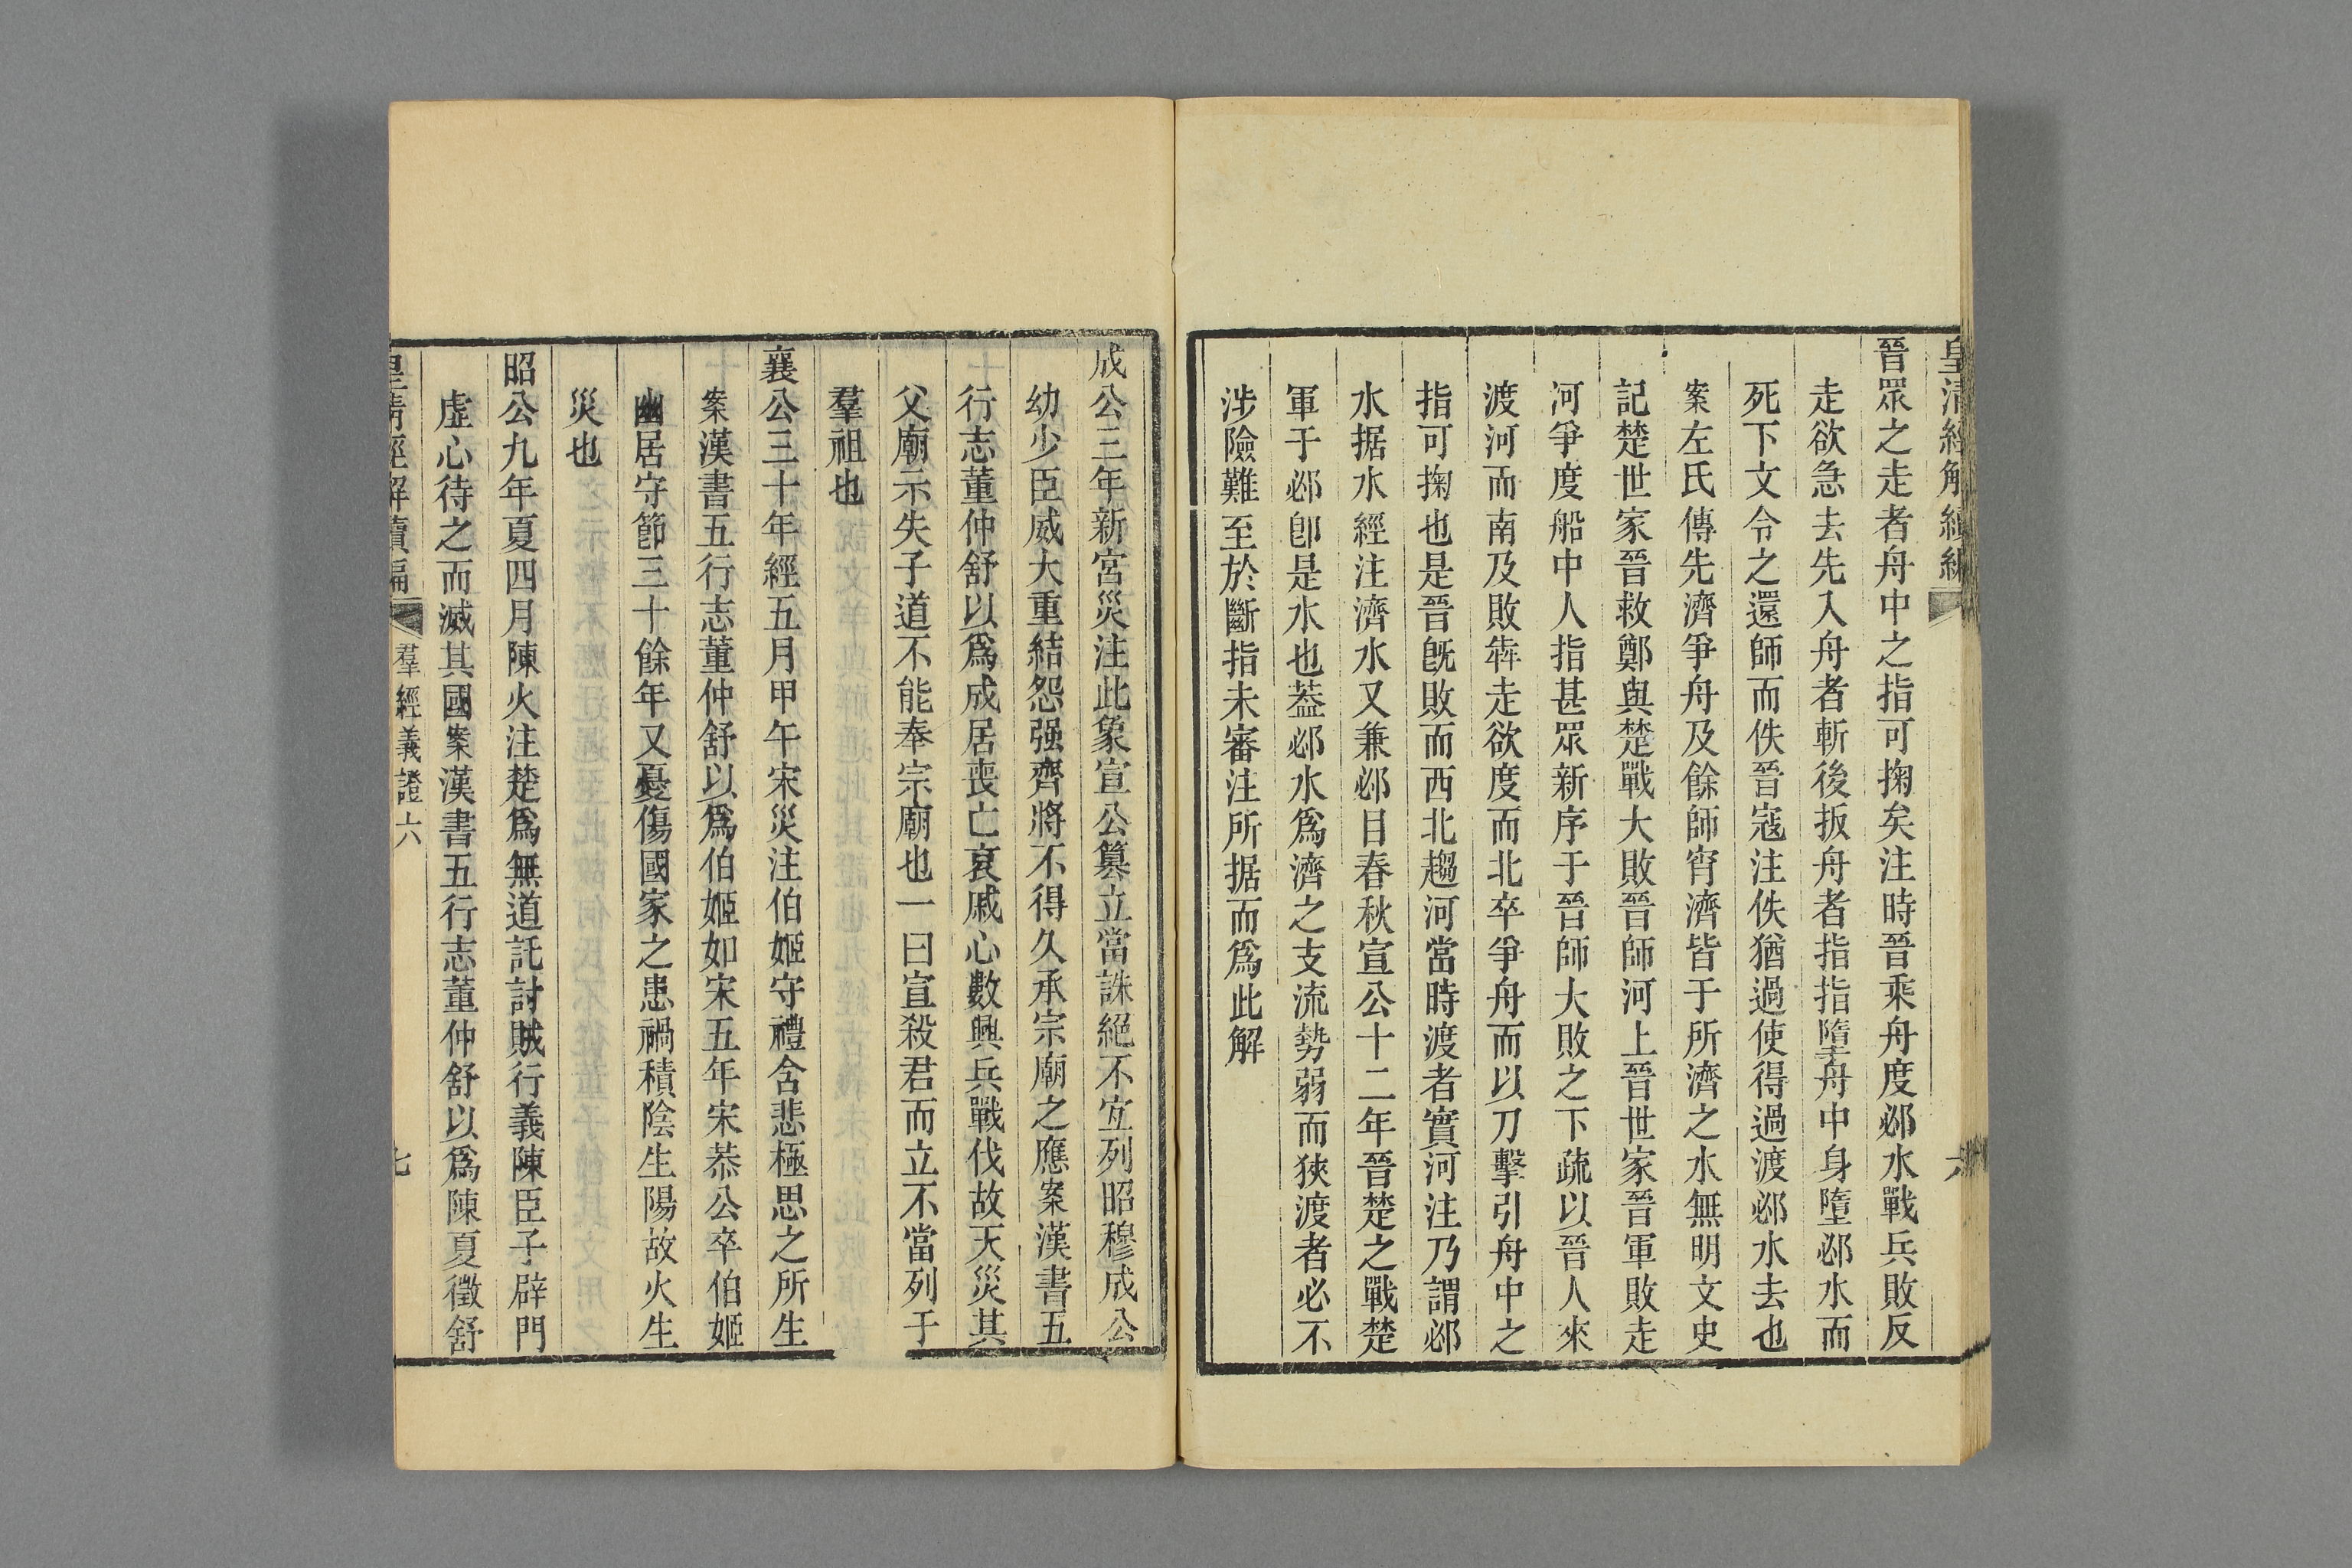 皇清經解續編
六
晉眾之走者舟中之指可掬矣注時晉乘舟度邲水戰兵敗反
走欲急去先入舟者斬後扳舟者指指墮舟中身墮邲水而
死下文令之還師而佚晉寇注佚猶過使得過渡邲水去也
案左氏傳先濟爭舟及餘師宵濟皆于所濟之水無明文史
記楚世家晉救鄭與楚戰大敗晉師河上晉世家晉軍敗走
河爭度船中人指甚眾新序于晉師大敗之下疏以晉人來
渡河而南及敗犇走欲度而北卒爭舟而以刀擊引舟中之
指可掬也是晉旣敗而西北趨河當時渡者實河注乃謂邲
水据水經注濟水又兼邲目春秋宣公十二年晉楚之戰楚
軍于邲卽是水也葢邲水爲濟之支流勢弱而狹渡者必不
涉險難至於斷指未審注所据而爲此解
成公三年新宮災注此象宣公簒立當誅絕不宐列昭穆成公
幼少臣威大重結怨强齊將不得久承宗廟之應案漢書五
行志董仲舒以爲成居喪亡哀戚心數興兵戰伐故天災其
父廟示失子道不能奉宗廟也一曰宣殺君而立不當列于
羣祖也
襄公三十年經五月甲午宋災注伯姬守禮含悲極思之所生
案漢書五行志董仲舒以爲伯姬如宋五年宋恭公卒伯姬
幽居守節三十餘年又憂傷國家之患禍積陰生陽故火生
災也
昭公九年夏四月陳火注楚爲無道託討賊行義陳臣子辟門
虛心待之而滅其國案漢書五行志董仲舒以爲陳夏徵舒
皇清經解續編
羣經義證六
七